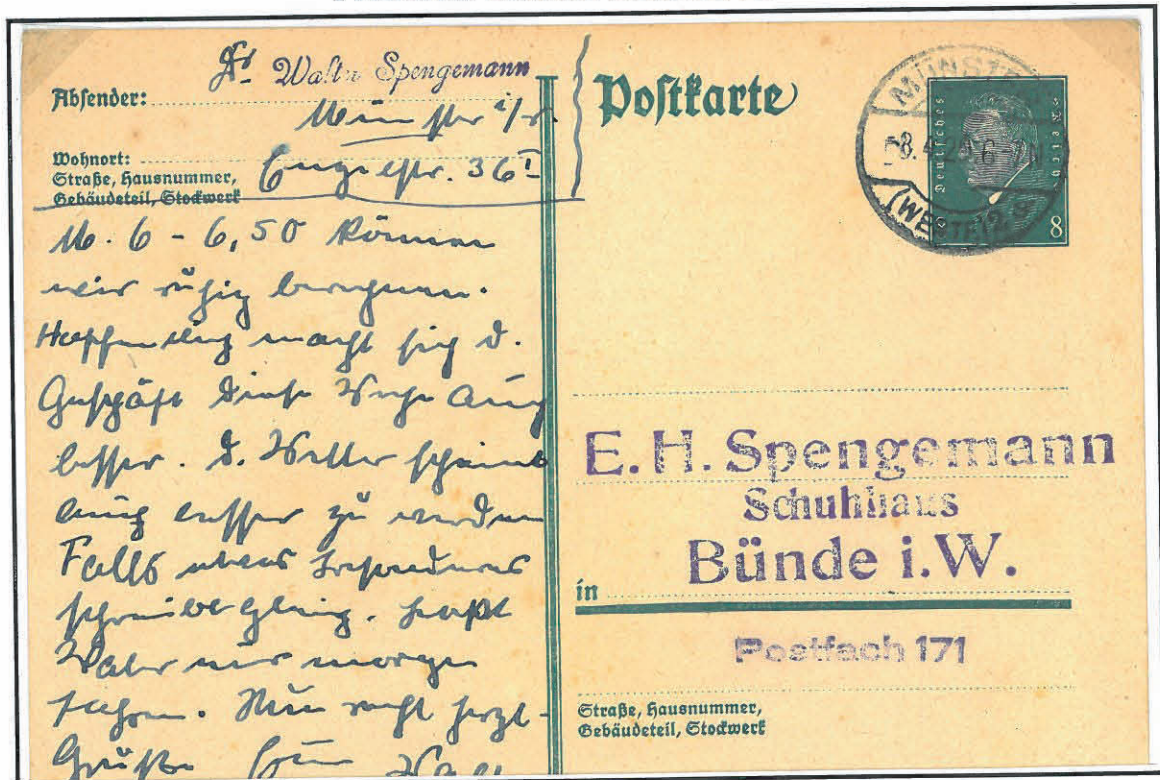 Dr Walter Spengemann
Absender:
Münster i/W.
Wohnort:
Straße, Hausnummer,
Gebäudeteil, Stockwerk
Engelstr. 36 I
M. 6 - 6,50 können
wir ruhig berechnen.
Hoffentlich macht sich d.
Geschäft diese Woche auch
besser. d. Wetter scheint
auch besser zu werden
Falls etwas besonderes
schreibt gleich. Laßt
Vater nur morgen
fahren. Nun recht herzl.
Grüße Euer
Postkarte
MÜNSTER
(WESTF) 2
Deutsches Reich
8
E. H. Spengemann
Schuhhaus
Bünde i. W.
in
Postfach 171
Straße, Hausnummer,
Gebäudeteil, Stockwerk